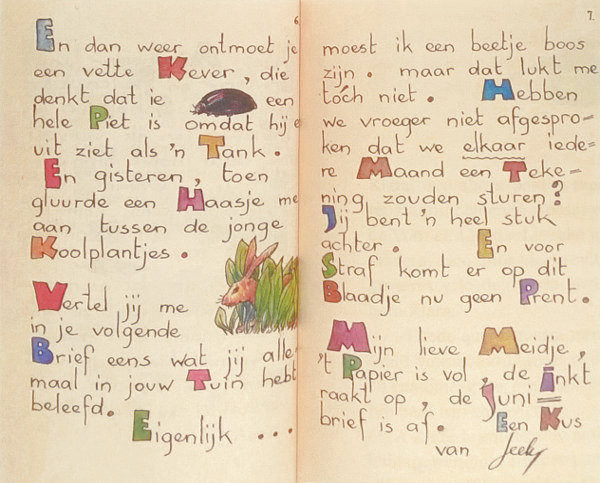 6
En dan weer ontmoet je
een vette Kever, die
denkt dat ie een
hele Piet is omdat hij e
uit ziet als 'n Tank.
En gisteren, toen
gluurde een Haasje me
aan tussen de jonge
Koolplantjes.
Vertel jij me
in je volgende
Brief eens wat jij alle-
maal in jouw Tuin hebt
beleefd.
Eigenlijk ...
7.
moest ik een beetje boos
zijn. maar dat lukt me
tóch niet. Hebben
we vroeger niet afgespro-
ken dat we elkaar iede-
re Maand een Teke-
ning zouden sturen?
Jij bent 'n heel stuk
achter. En voor
Straf komt er op dit
Blaadje nu geen Prent.
Mijn lieve Meidje,
't Papier is vol, de inkt
raakt op, de Juni=
brief is af. Een Kus
van